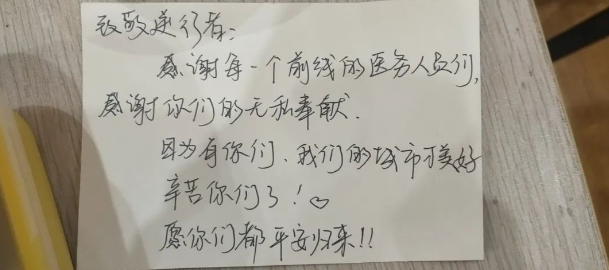 致敬逆行者：
感谢每一个前线的医务人员们，
感谢你们的无私奉献．
因为有你们、我们的城市才美好
辛苦你们了！♡
愿你们都平安归来！！